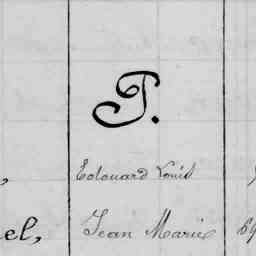 T.
, Edouard Louis
el, Jean Marie 69